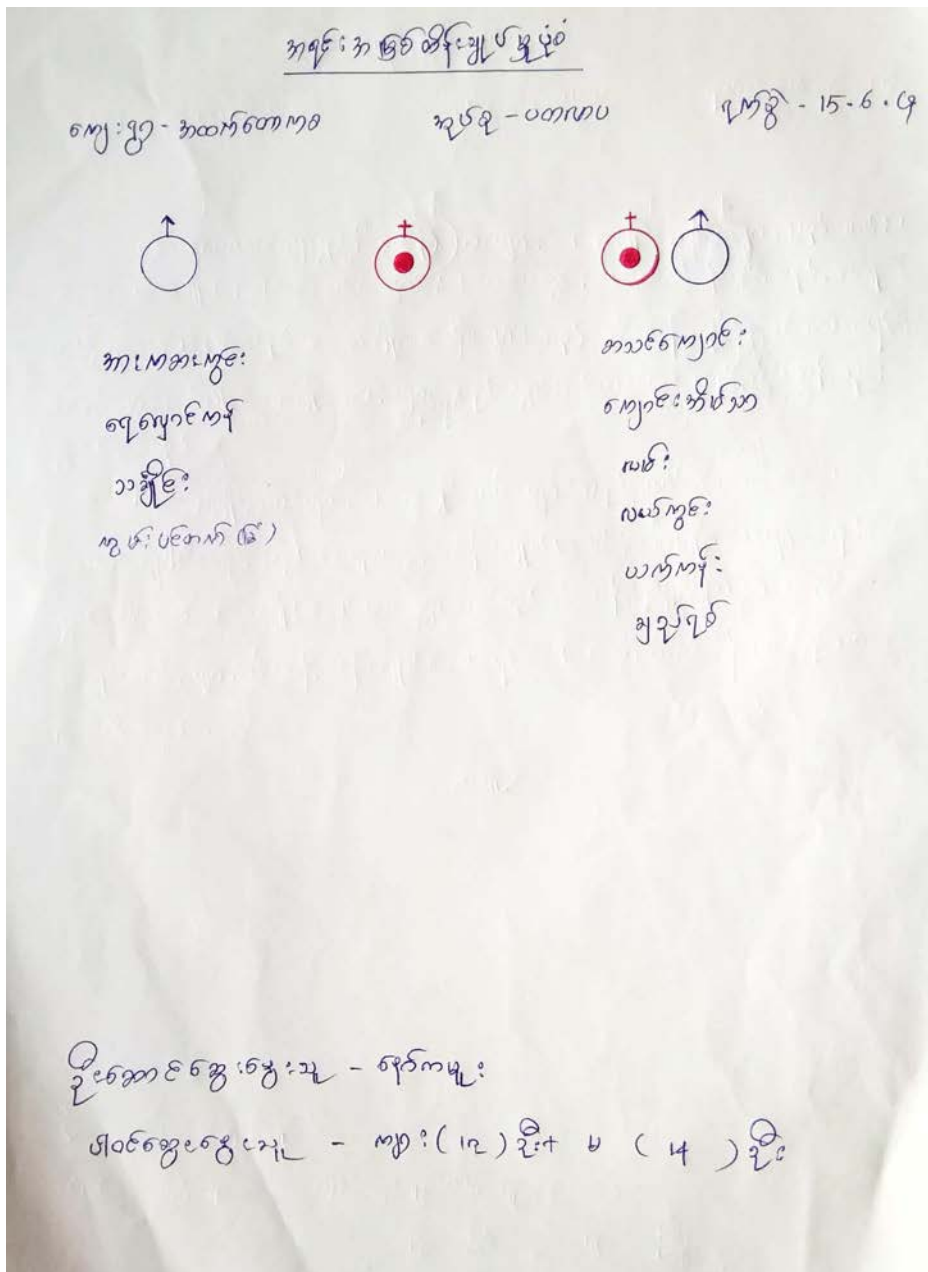 အရင်းအမြစ်ထိန်းချုပ်မှုပုံစံ
ကျေးရွာ - အထက်တောကစ အုပ်စု - ပတလပ ရက်စွဲ - 15.6.
အားကစားကွင်း
ရေလှောင်ကန်
သချိုင်း
ကွမ်းပင်တက် (ခြံ)
စာသင်ကျောင်း
ကျောင်းအိမ်သာ
လမ်း
လယ်ကွင်း
ယက်ကန်း
ချည်ရစ်
ဦးဆောင်ဆွေးနွေးသူ - နော်ကမူး
ပါဝင်ဆွေးနွေးသူ - ကျား (12) ဦး + မ (14) ဦး